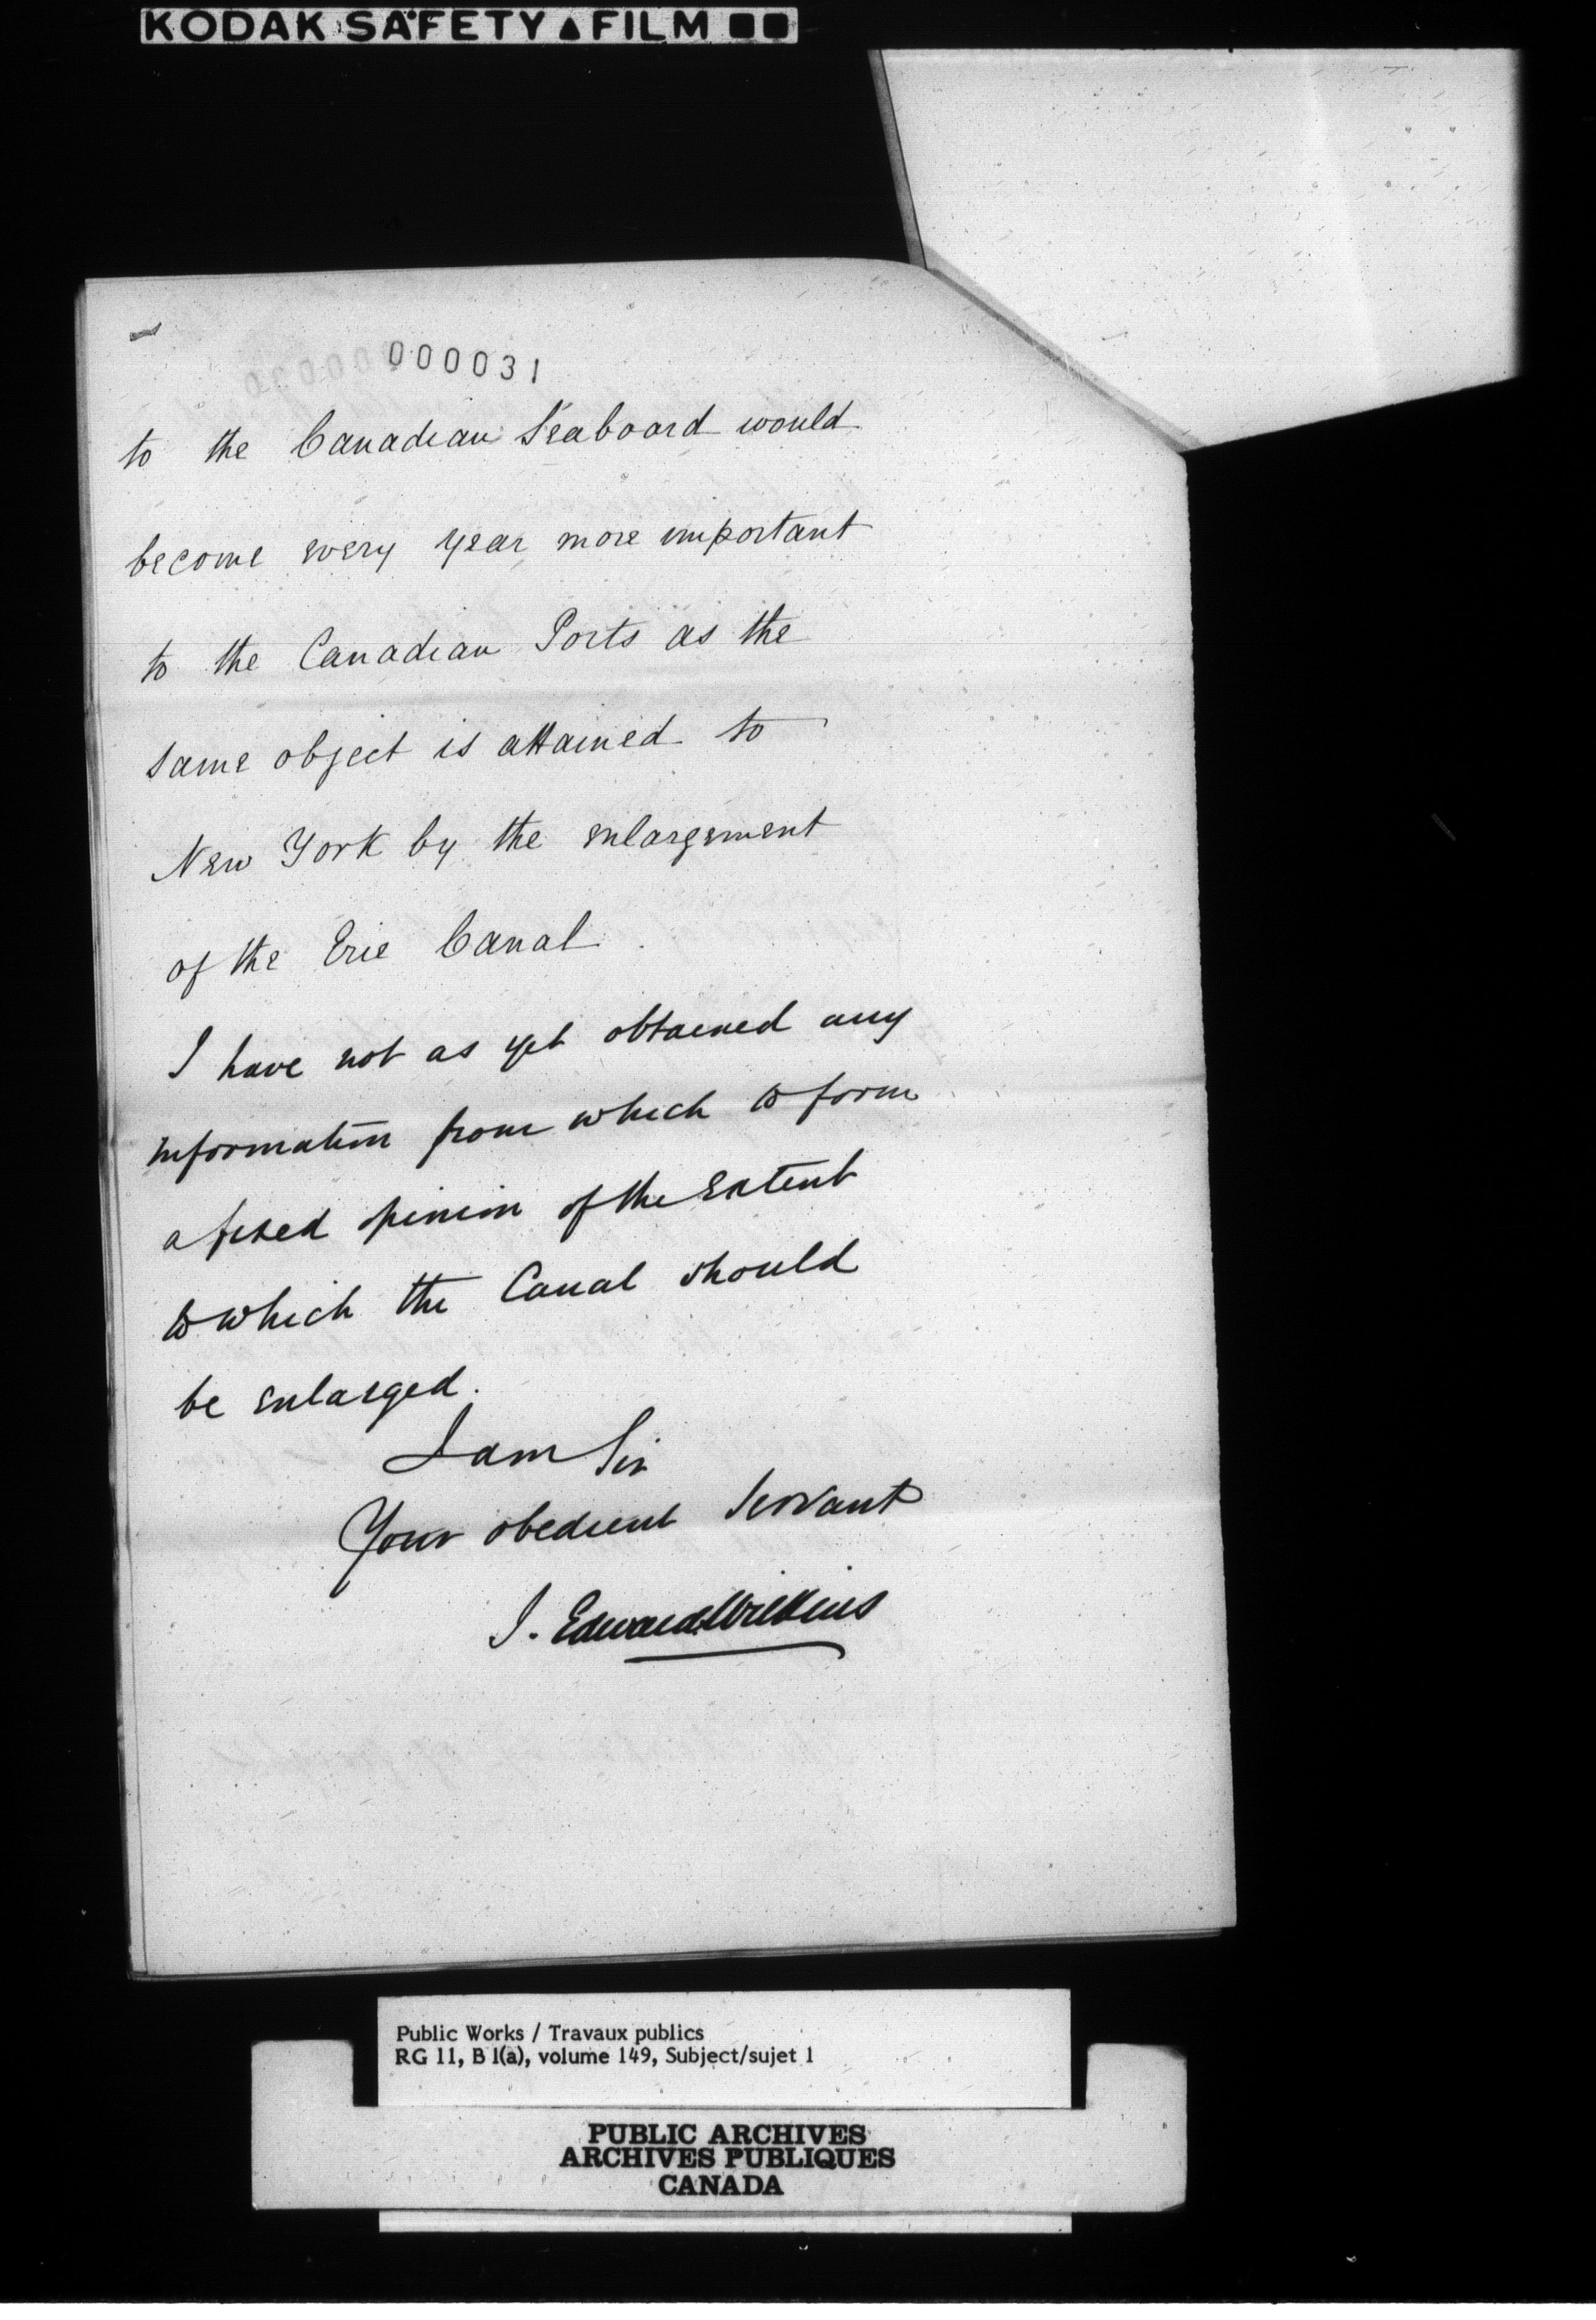 KODAK SAFETY FILM
000031
to the Canadian Seaboard would
become every year more important
to the Canadian Ports as the
same object is attained to
New York by the enlargement
of the Erie Canal
I have not as yet obtained any
information from which to form
a fixed opinion of the extent
to which the Canal should
be enlarged.
I am Sir
Your obedient Servant
J. Edward Wilkins
Public Works / Travaux publics
RG 11, B 1(a), volume 149, Subject/sujet 1
PUBLIC ARCHIVES
ARCHIVES PUBLIQUES
CANADA